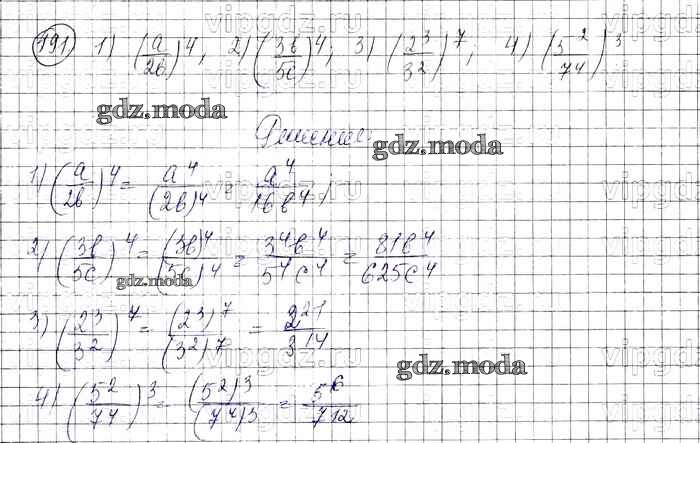 191. 1) (a/2b)^4; 2) (3b/5c)^4; 3) (2^3/3^2)^7; 4) (5^2/7^4)^3
gdz.moda
Решение.
gdz.moda
1) (a/2b)^4 = a^4/(2b)^4 = a^4/16b^4;
2) (3b/5c)^4 = (3b)^4/(5c)^4 = 3^4b^4/5^4c^4 = 81b^4/625c^4
gdz.moda
3) (2^3/3^2)^7 = (2^3)^7/(3^2)^7 = 2^21/3^14
gdz.moda
4) (5^2/7^4)^3 = (5^2)^3/(7^4)^3 = 5^6/7^12
vipgdz.ru